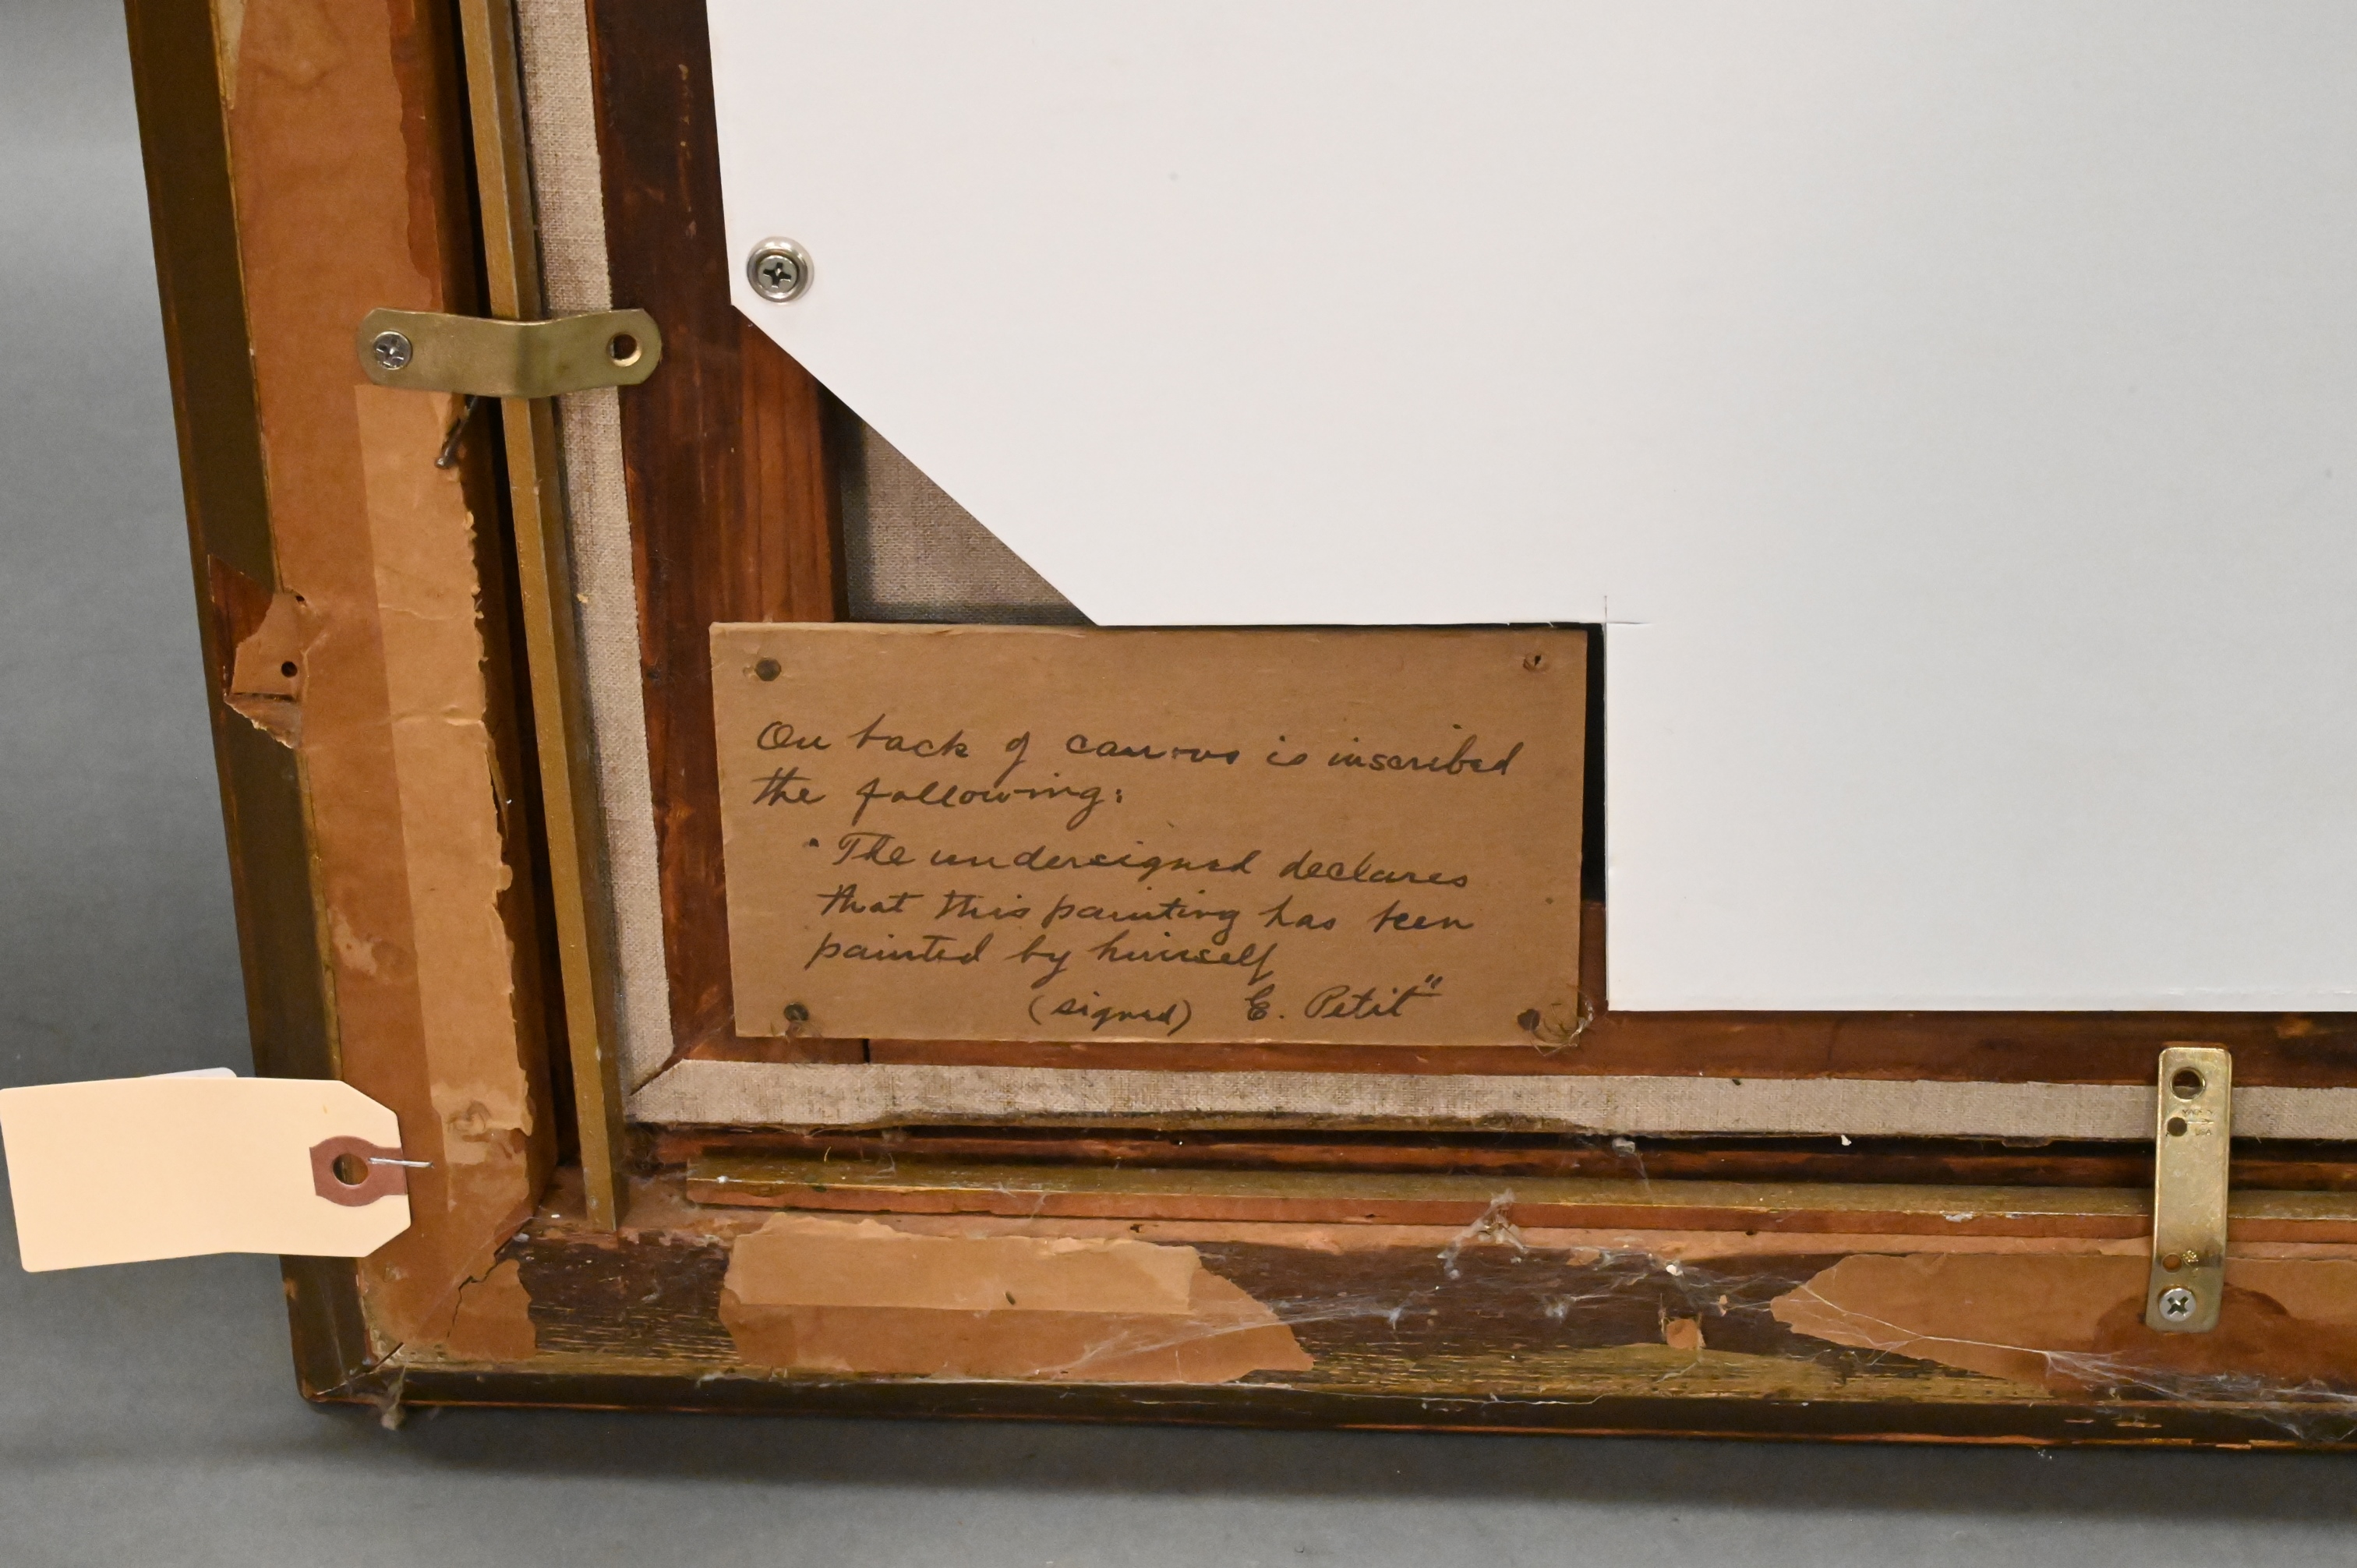 On back of canvas is inscribed
the following:
"The undersigned declares
that this painting has been
painted by himself
(signed) E. Petit"